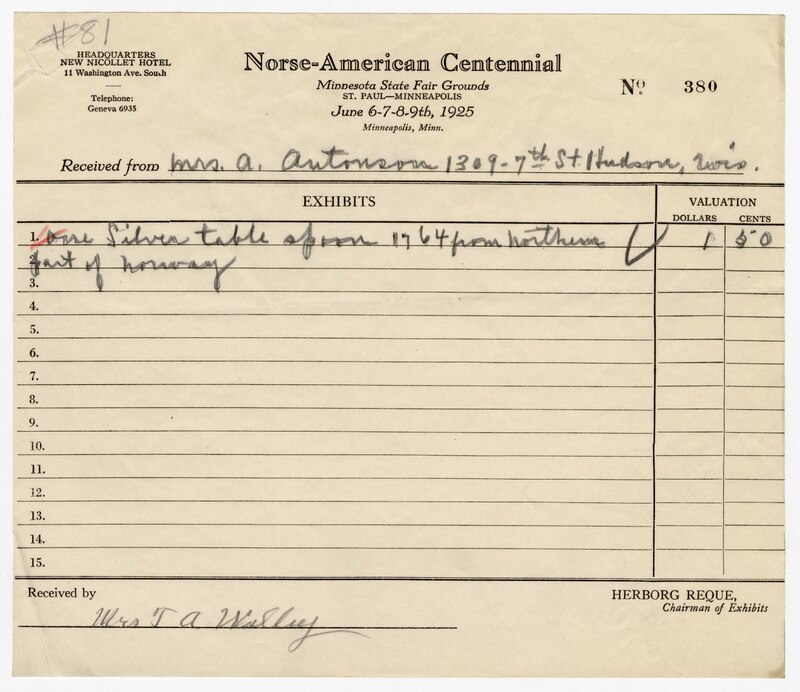 #81
HEADQUARTERS
NEW NICOLLET HOTEL
11 Washington Ave. South
Telephone:
Geneva 6935
Norse-American Centennial
Minnesota State Fair Grounds
ST. PAUL—MINNEAPOLIS
June 6-7-8-9th, 1925
Minneapolis, Minn.
No. 380
Received from Mrs. A. Antonson 1309-7th St. Hudson, Wis.
EXHIBITS
VALUATION
DOLLARS CENTS
1. One Silver table spoon 1764 from northern 1 50
2. part of Norway
3.
4.
5.
6.
7.
8.
9.
10.
11.
12.
13.
14.
15.
Received by
Mrs T A
HERBORG REQUE,
Chairman of Exhibits